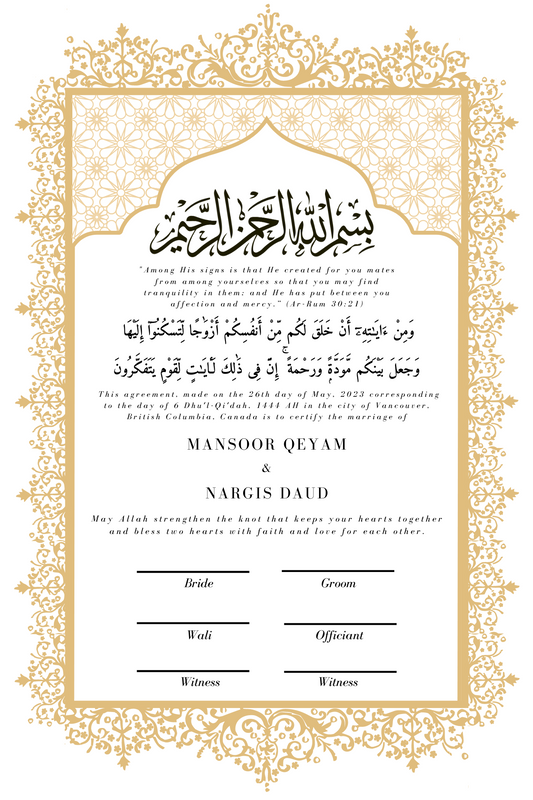 بِسْمِ اللَّهِ الرَّحْمَنِ الرَّحِيمِ
"Among His signs is that He created for you mates
from among yourselves so that you may find
tranquility in them; and He has put between you
affection and mercy." (Ar-Rum 30:21)
وَمِنْ ءَايَـٰتِهِۦٓ أَنْ خَلَقَ لَكُم مِّنْ أَنفُسِكُمْ أَزْوَٰجًا لِّتَسْكُنُوٓا۟ إِلَيْهَا
وَجَعَلَ بَيْنَكُم مَّوَدَّةً وَرَحْمَةً ۚ إِنَّ فِى ذَٰلِكَ لَـَٔايَـٰتٍ لِّقَوْمٍ يَتَفَكَّرُونَ
This agreement, made on the 26th day of May, 2023 corresponding
to the day of 6 Dhuʻl-Qiʻdah, 1444 AH in the city of Vancouver,
British Columbia, Canada is to certify the marriage of
MANSOOR QEYAM
&
NARGIS DAUD
May Allah strengthen the knot that keeps your hearts together
and bless two hearts with faith and love for each other.
Bride
Groom
Wali
Officiant
Witness
Witness